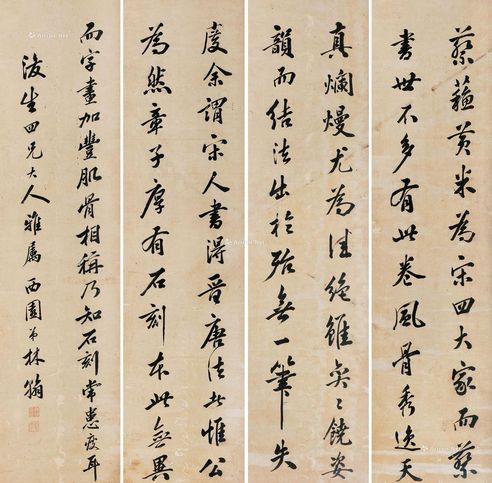 蔡蘇黃米為宋四大家而蔡
書世不多有此卷風骨秀逸天
真爛熳尤為佳絕雖矣〻饒姿
韻而結法出於殆無一筆失
度余謂宋人書得晉唐法者惟公
為然章子厚有石刻本此無異
而字畫加豐肌骨相稱乃知石刻常患瘦耳
浚生四兄大人雅屬 西園弟林翰